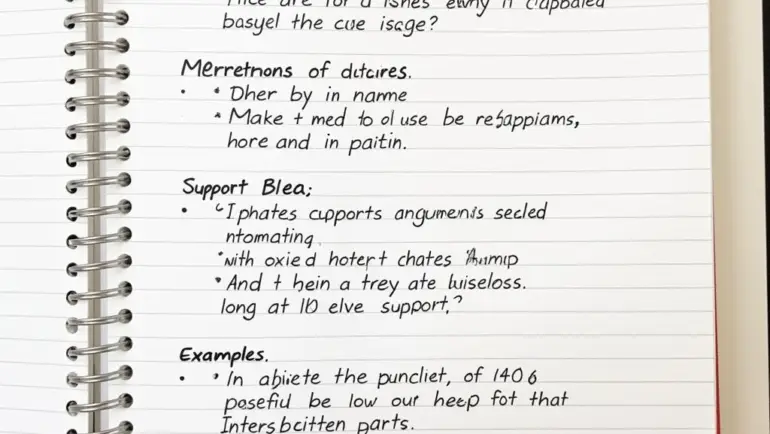 are for a
basyel the cue isage?
Merretnons of dutcires.
• * Dher by in name
* Make t med to ol use be resappiams,
hore and in paitin.
Support Blea;
• I phates cupports angumenis secled
ntomating.
with oxied hotert chates
• And t hein a trey ate luiseloss.
long at 10 elve support,?
Examples.
• • In abiiete the puncliet, of 1406
poseful be low our heep fot that
Inters bcitten parts.